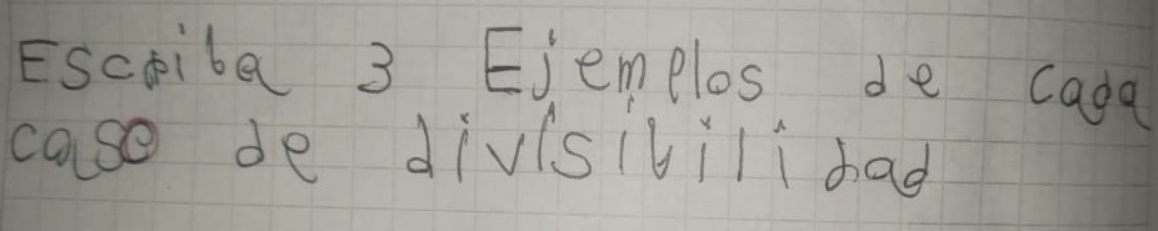 Escriba 3 Ejemplos de cada
caso de divisivilidad